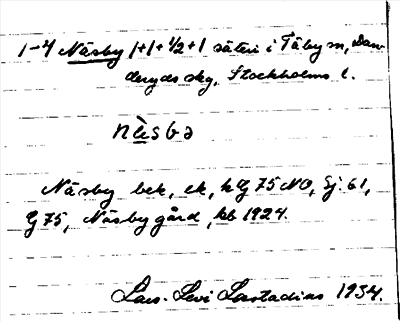 1-4 Näsby 1+1+1/2+1 säteri i Täby sn, Dan-
deryds skg, Stockholms l.
nɛ̀sbə
Näsby bek, ek, hG 75 NO, Gj. 61,
G 75, Näsby gård, kb 1924.
Lars-Levi Læstadius 1934.